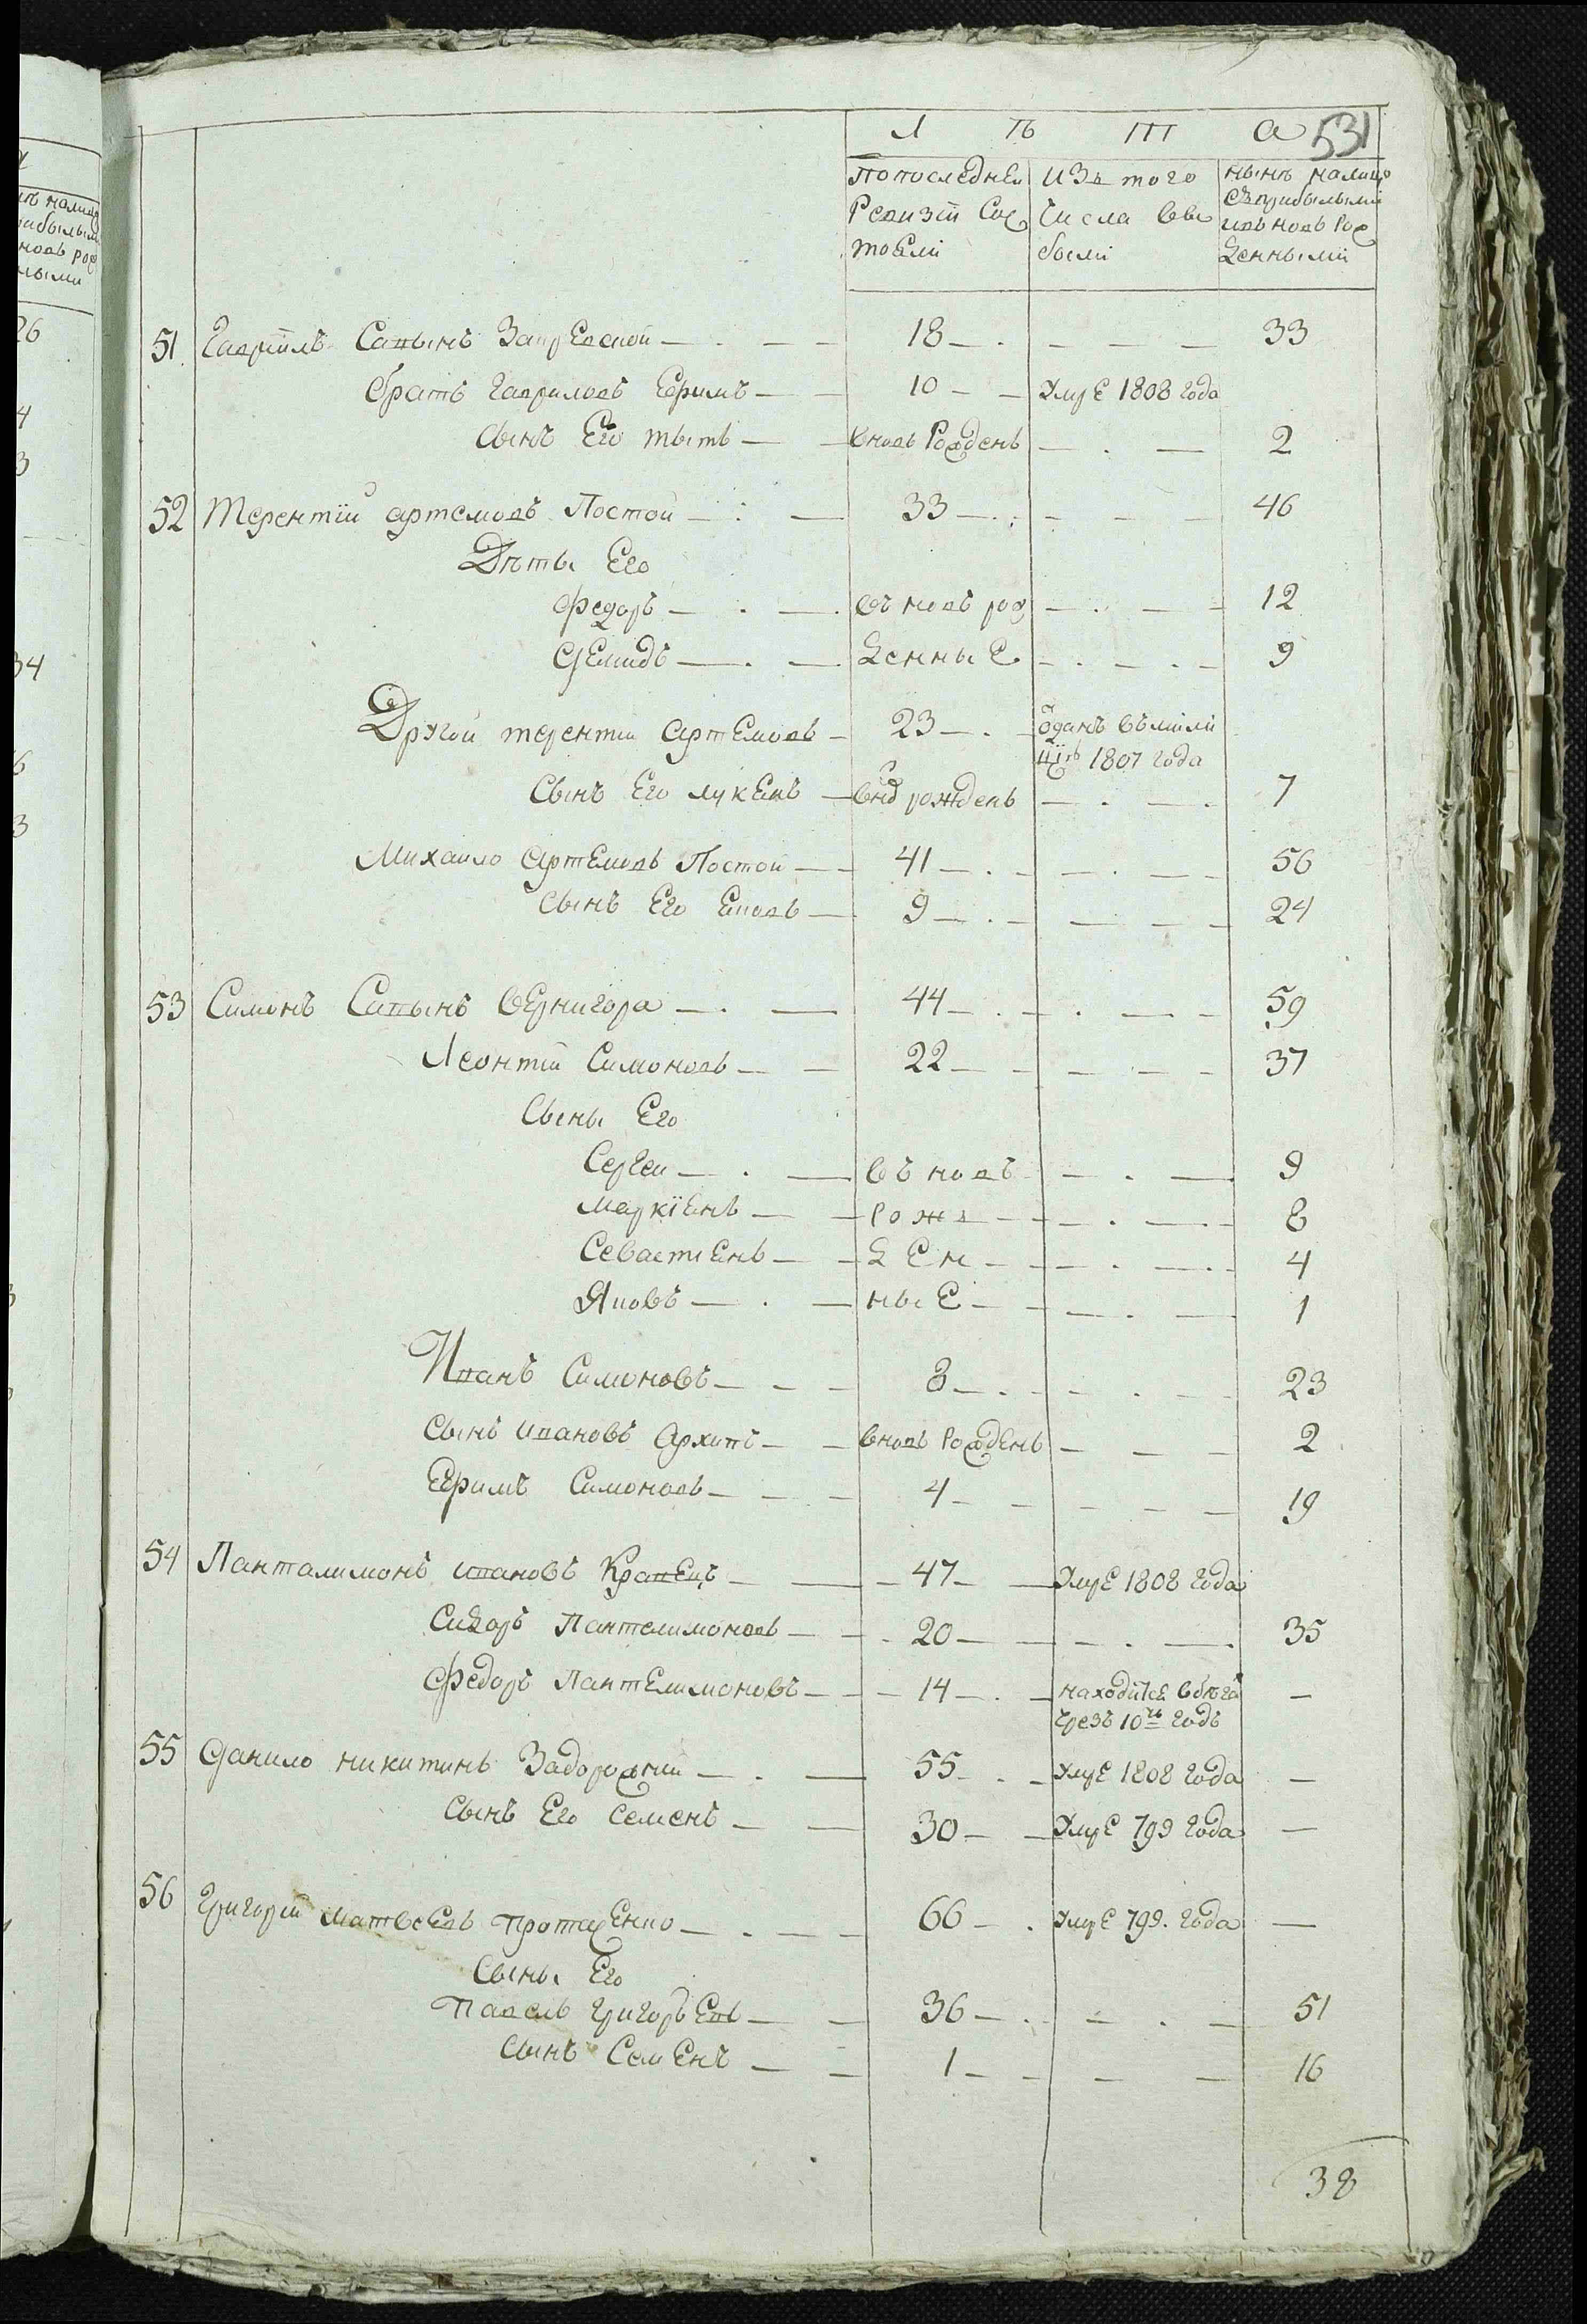 Л Ѣ Т а 531
По последней Изъ того нынѣ налицо
Ревизіи Сос числа вы съприбылыми
тоЕли были ивъновь рож
денными
51 Гаврiилъ Савынъ — 18 — 33
братъ Гавриловъ Ефимъ — 10 — УмрЕ 1808 года
Сынъ Его Титъ — вновь Рожденъ — 2
52 Терентiй Артемовъ Постой — 33 — 46
Дѣты Его
Федоръ — въ новь рож — 12
ДЕмидъ — денныЕ — 9
Другой Терентiй АртЕмовъ — 23 — ѿданъ въмили
цiю 1807 года
Сынъ Его ЛукЕянъ — внѡ рожденъ — 7
Михайло АртЕмовъ Постой — 41 — 56
Сынъ Его — 9 — 24
53 Симонъ Савынъ ВЕрнигора — 44 — 59
Леонтiй Симоновъ — 22 — 37
Сыны Его
Сергей — въ новь — 9
МаркiЕнъ — рож — 8
СевастiЕнъ — дЕн — 4
Яковъ — ныЕ — 1
Иванъ Симоновъ — 8 — 23
Сынъ Ивановъ Архипъ — вновь РождЕнъ — 2
Ефимъ Симоновъ — 4 — 19
54 Панталимонъ Ивановъ КравЕцъ — 47 — УмрЕ 1808 года
Сидоръ Пантелимоновъ — 20 — 35
Федоръ ПантЕлимоновъ — 14 — находитсЕ вбѣга —
чрезъ 10ть годъ
55 Данило Никитинъ Задорожнiй — 55 — УмрЕ 1808 года —
Сынъ Его Семенъ — 30 — УмрЕ 799 года —
56 Григорiй МатвеЕвъ ПротщЕнко — 66 — УмрЕ 799. года —
Сыны Его
Павелъ ГригорьЕвъ — 36 — 51
Сынъ СемЕнъ — 1 — 16
38